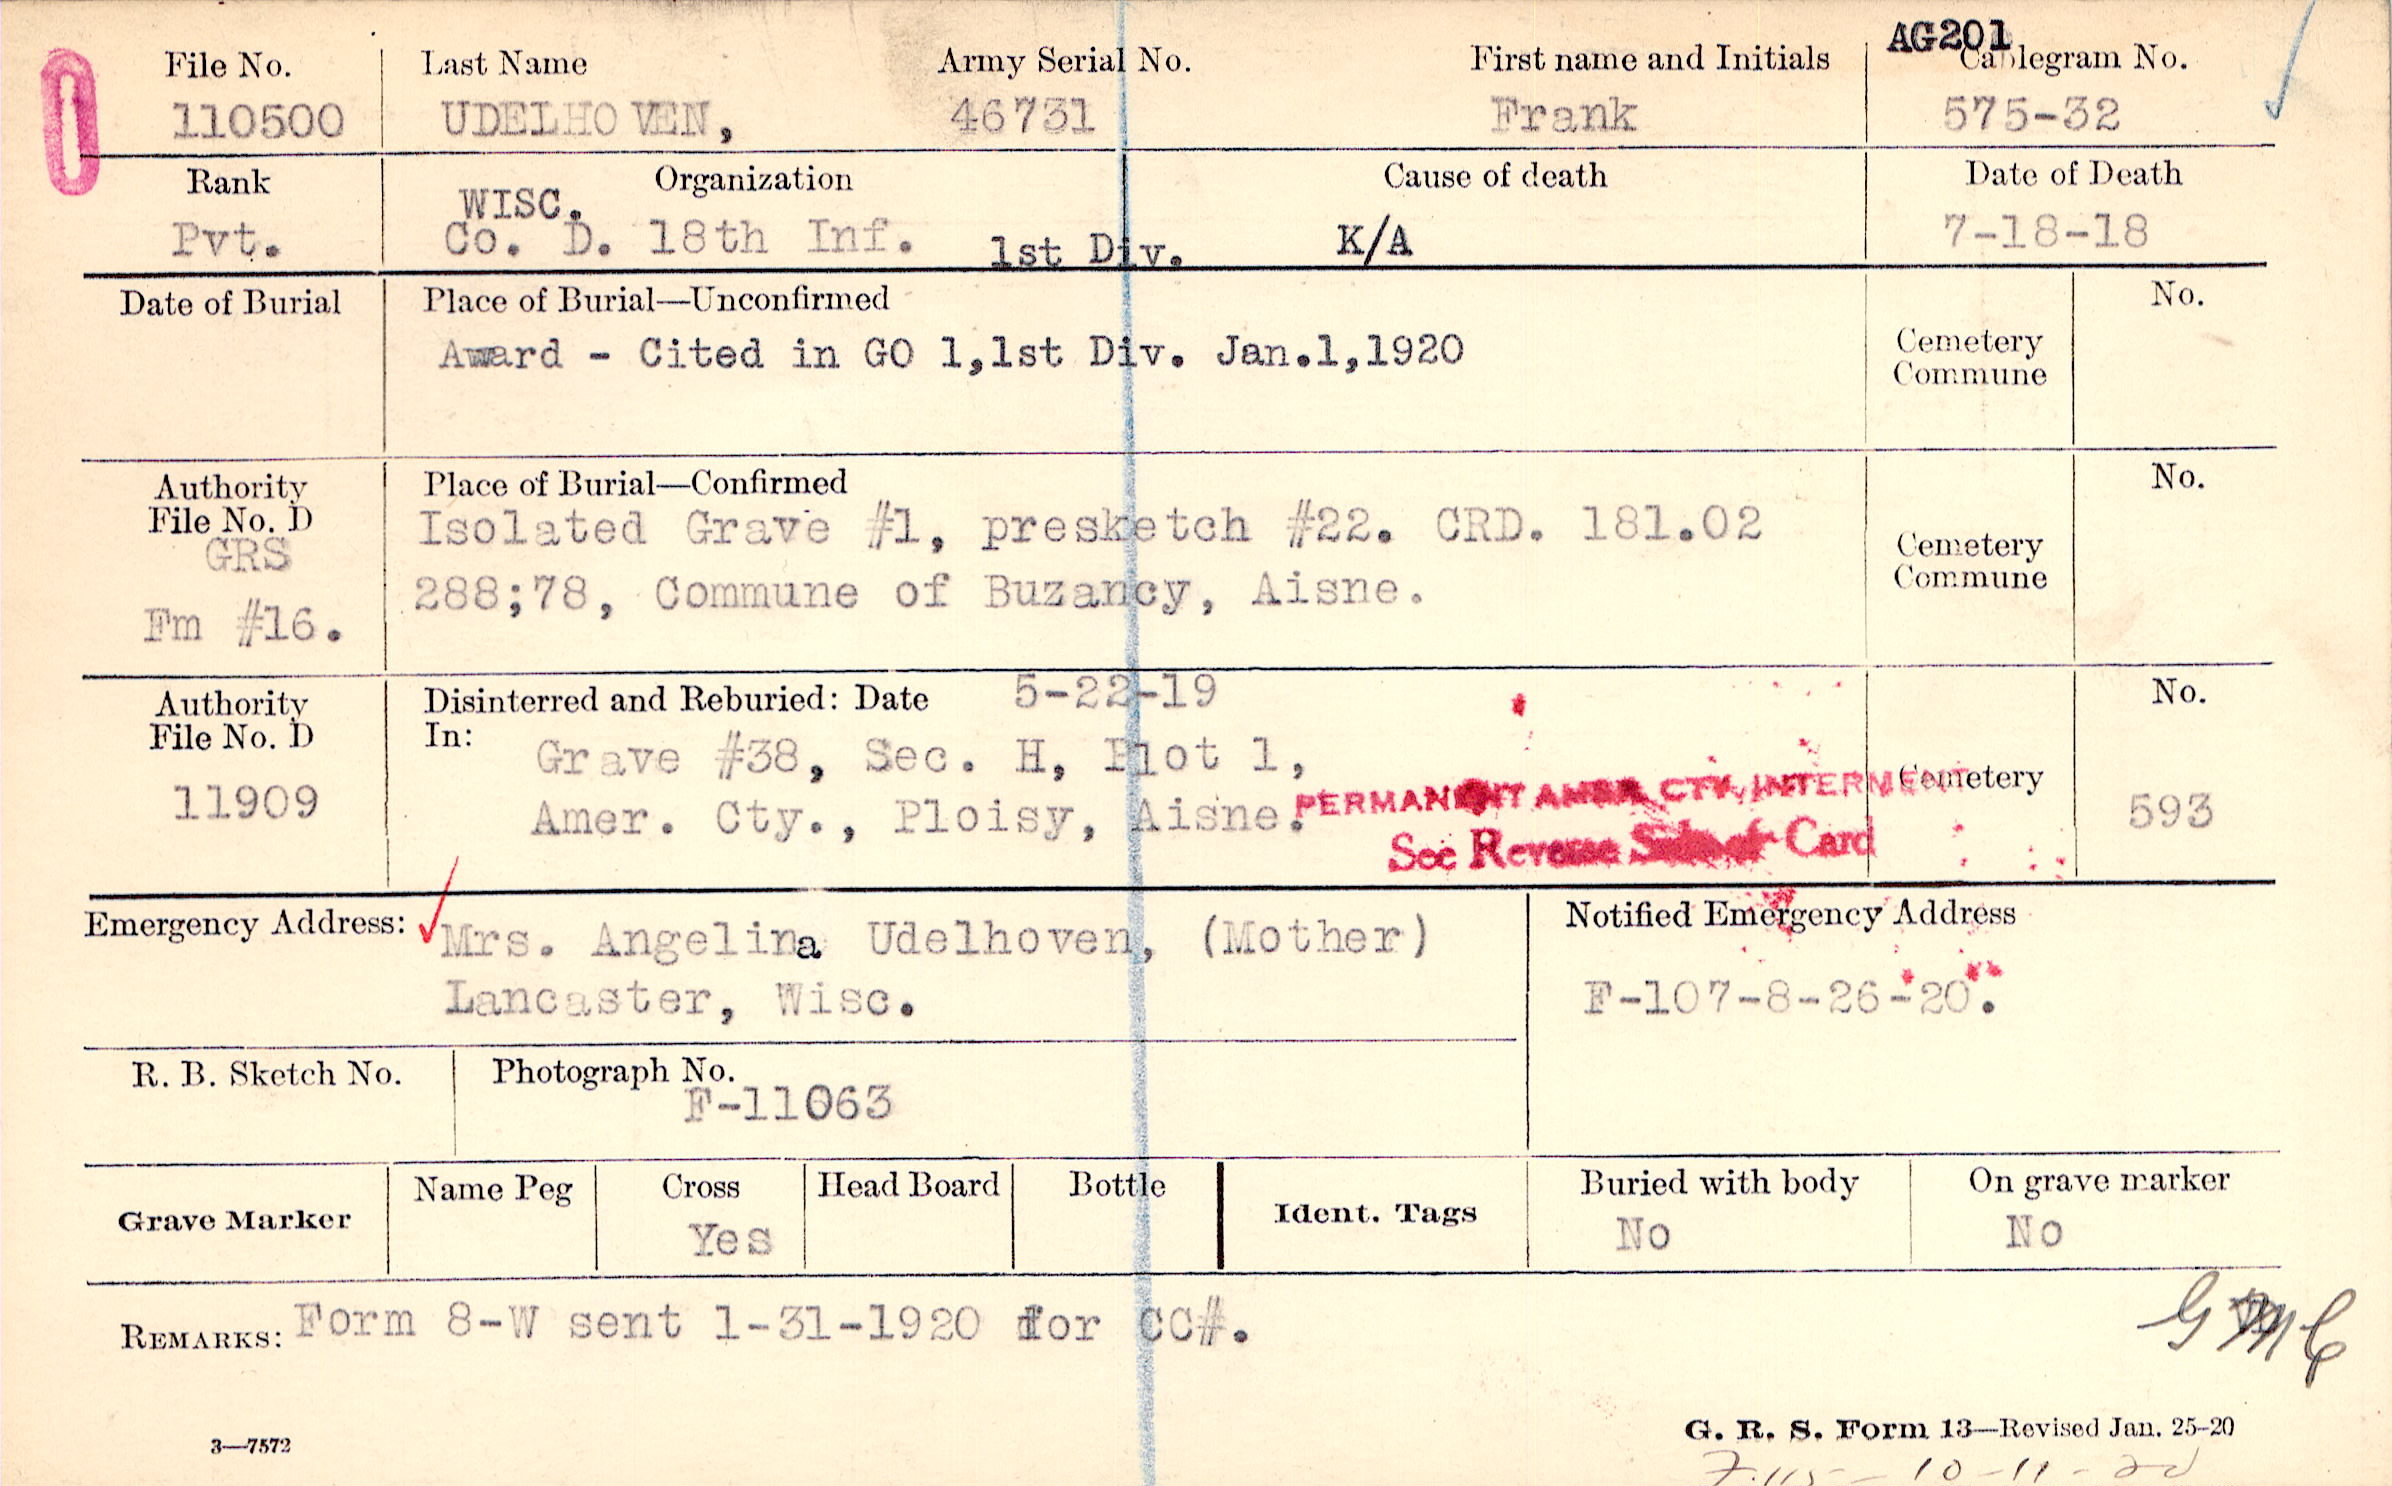 AG201
File No. Last Name Army Serial No. First name and Initials Cablegram No.
110500 UDELHOVEN, 46731 Frank 575-32
Rank Organization Cause of death Date of Death
WISC.
Pvt. Co. D. 18th Inf. 1st Div. K/A 7-18-18
Date of Burial Place of Burial—Unconfirmed No.
Award - Cited in GO 1,1st Div. Jan.1,1920
Cemetery
Commune
Authority Place of Burial—Confirmed No.
File No. D Isolated Grave #1, presketch #22. CRD. 181.02
GRS Cemetery
288;78, Commune of Buzancy, Aisne. Commune
Fm #16.
Authority Disinterred and Reburied: Date 5-22-19 No.
File No. D In: Grave #38, Sec. H, Plot 1,
PERMANENT AMER. CTY. INTERMENT Cemetery
11909 Amer. Cty., Ploisy, Aisne. 593
See Reverse Side of Card
Emergency Address: Mrs. Angelina Udelhoven, (Mother) Notified Emergency Address
Lancaster, Wisc. F-107-8-26-20.
R. B. Sketch No. Photograph No.
F-11063
Grave Marker Name Peg Cross Head Board Bottle Ident. Tags Buried with body On grave marker
Yes No No
REMARKS: Form 8-W sent 1-31-1920 for CC#.
3—7572 G. R. S. Form 13—Revised Jan. 25-20